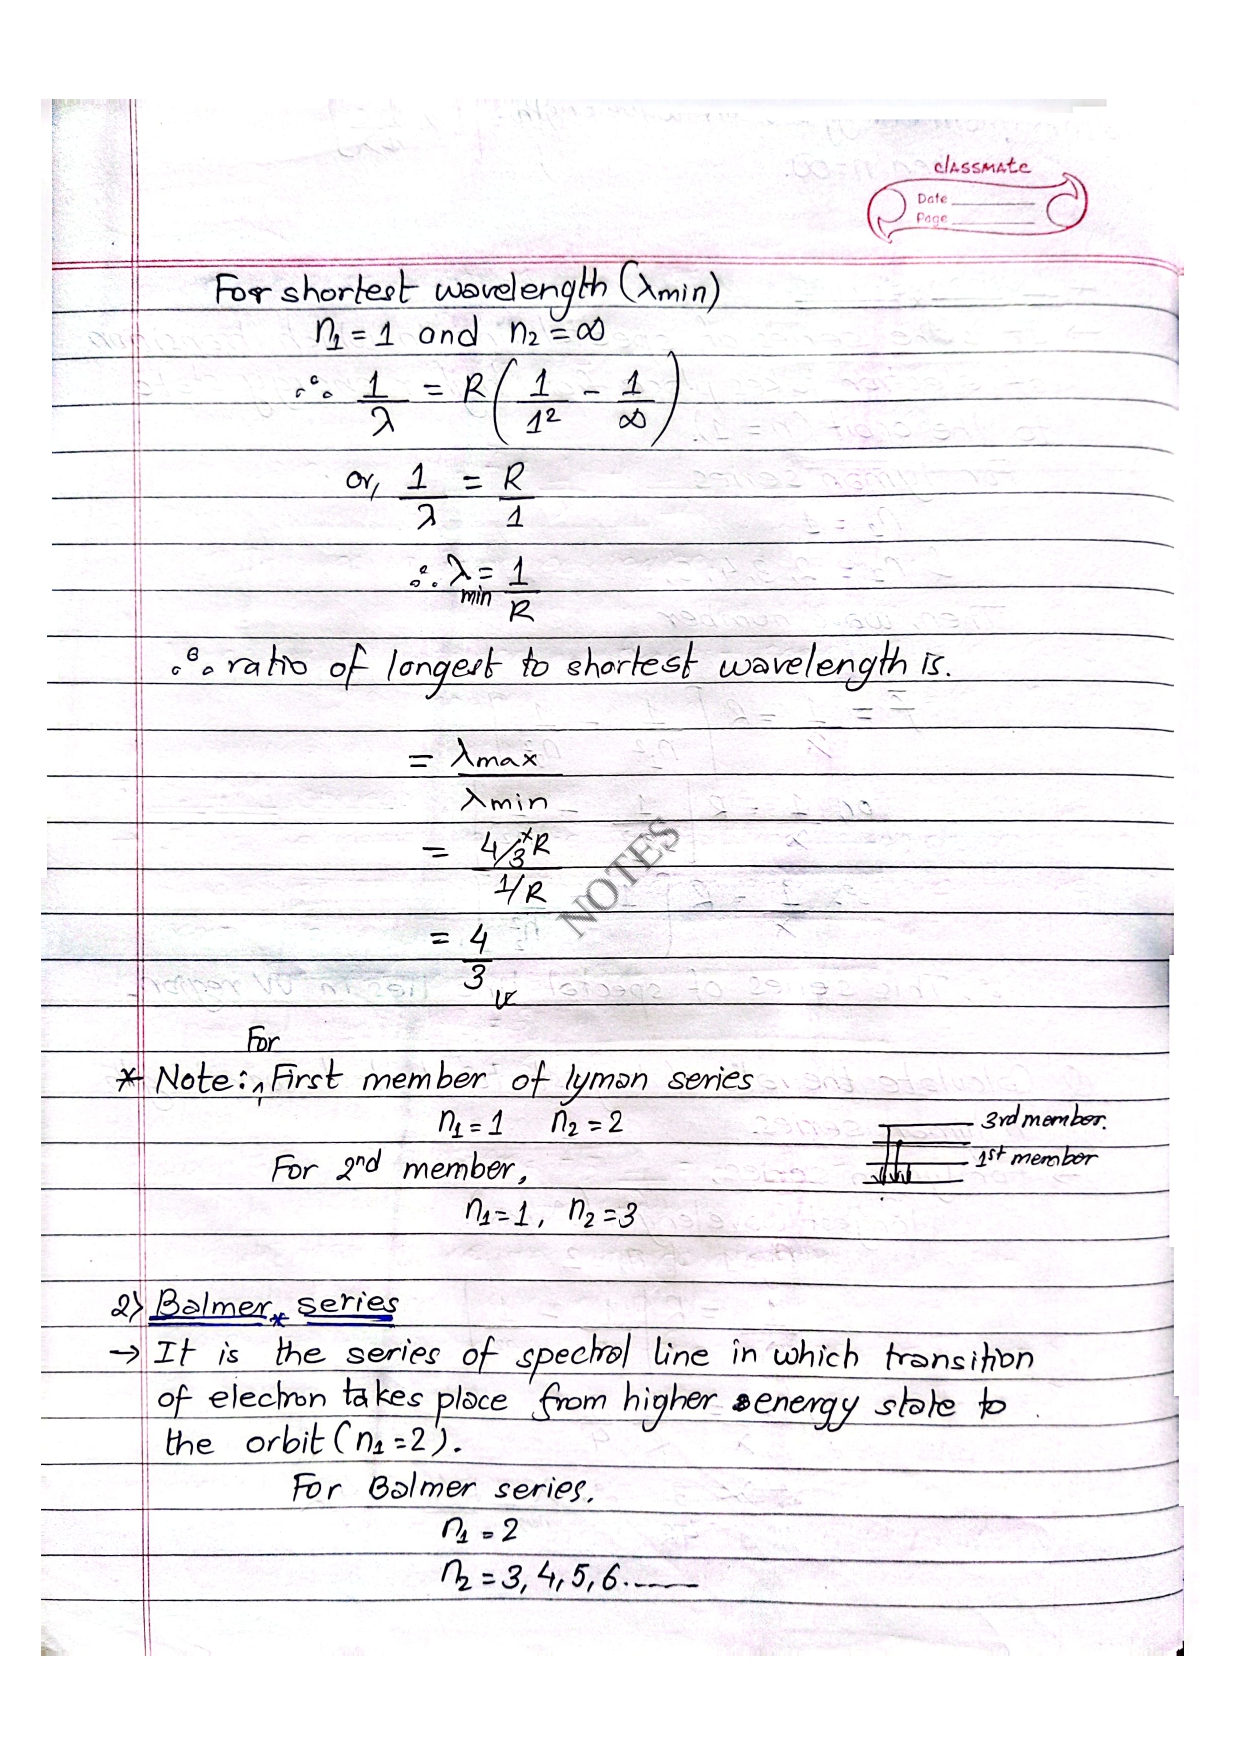 classmate
Date
Page
For shortest wavelength (λmin)
n₁ = 1 and n₂ = ∞
∴ 1/λ = R(1/1² - 1/∞)
or, 1/λ = R/1
∴ λmin = 1/R
∴ ratio of longest to shortest wavelength is.
= λmax/λmin
= 4/3×R / 1/R
= 4/3
NOTES
For
* Note: ^ First member of lyman series
n₁ = 1 n₂ = 2
3rd member.
For 2nd member,
1st member
n₁ = 1, n₂ = 3
2) Balmer* series
→ It is the series of spectral line in which transition
of electron takes place from higher energy state to
the orbit (n₁ = 2).
For Balmer series.
n₁ = 2
n₂ = 3, 4, 5, 6.......